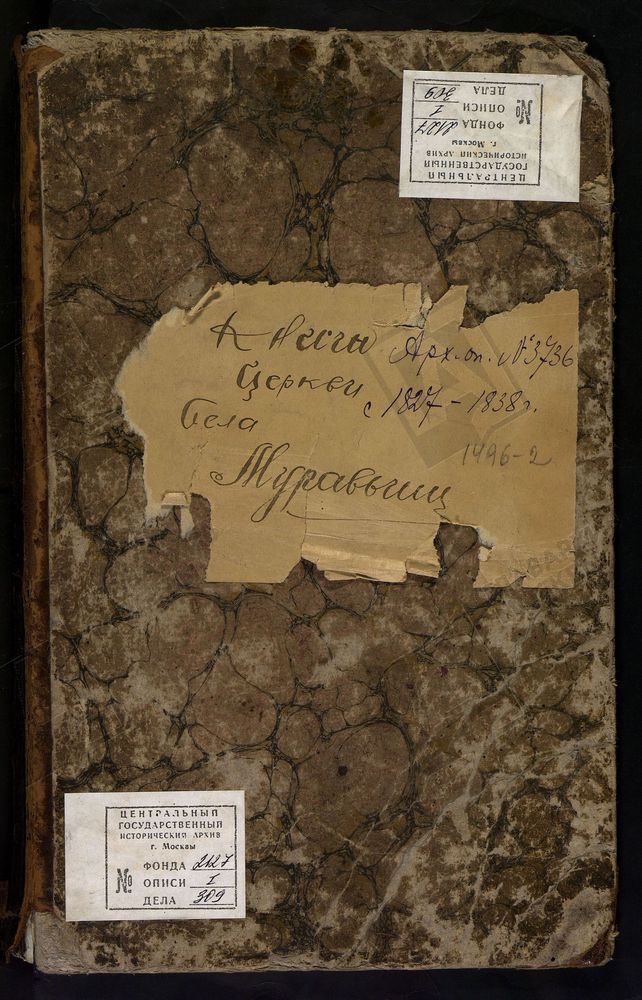 ЦЕНТРАЛЬНЫЙ
ГОСУДАРСТВЕННЫЙ
ИСТОРИЧЕСКИЙ АРХИВ
г. Москвы
№
ФОНДА 2127
ОПИСИ I
ДЕЛА 309
Книги
Церкви
Села
Муравьищ
Арх. оп. № 3736
с 1827 - 1838 г.
1496-2
ЦЕНТРАЛЬНЫЙ
ГОСУДАРСТВЕННЫЙ
ИСТОРИЧЕСКИЙ АРХИВ
г. Москвы
№
ФОНДА 2127
ОПИСИ I
ДЕЛА 309